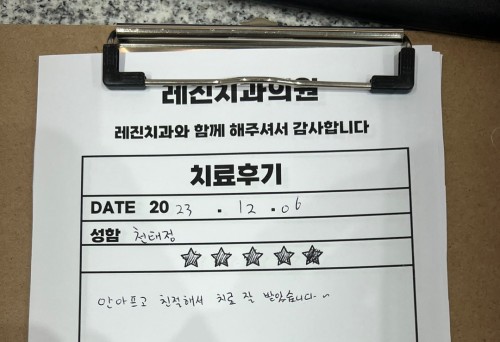 레진치과의원
레진치과와 함께 해주셔서 감사합니다
치료후기
DATE 2023 . 12 . 06
성함 천태정
안아프고 친절해서 치료 잘 받았습니다~